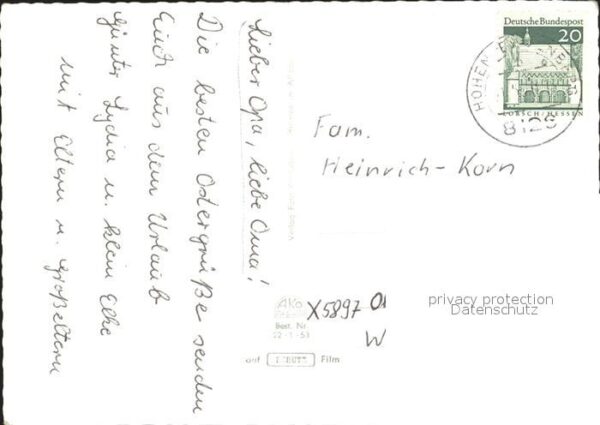 Lieber Opa, liebe Oma!
Die besten Ostergrüße senden
Euch aus dem Urlaub
Günter Lydia u. klein Elke
mit Eltern u. Großeltern
Deutsche Bundespost
20
LORSCH/HESSEN
HOHEN
8125
Fam.
Heinrich-Korn
AKo
X5897 01
W
Best. Nr.
privacy protection
Datenschutz
auf PERUTZ Film